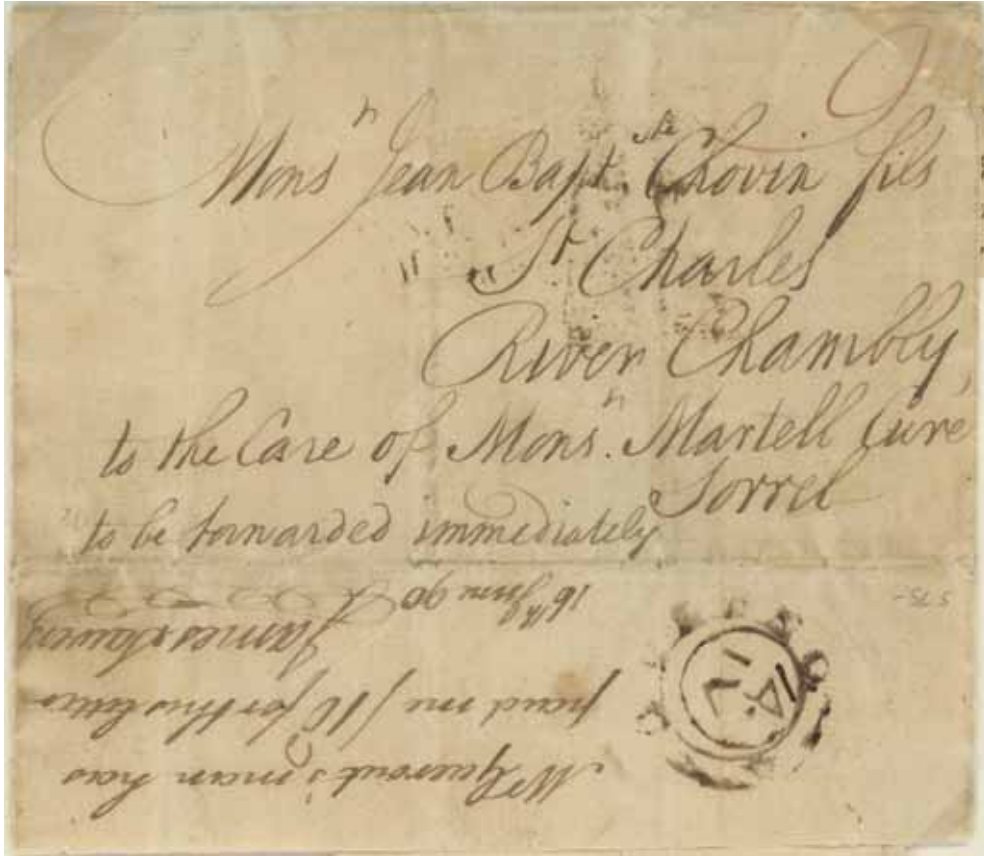 Monsr Jean Baptste Chovin fils
St Charles
River Chambly,
to the Care of Monsr. Martell Curé
Sorrel
to be forwarded immediately
Mr man has
paid me /10 for this letter
James
16th June 90
14